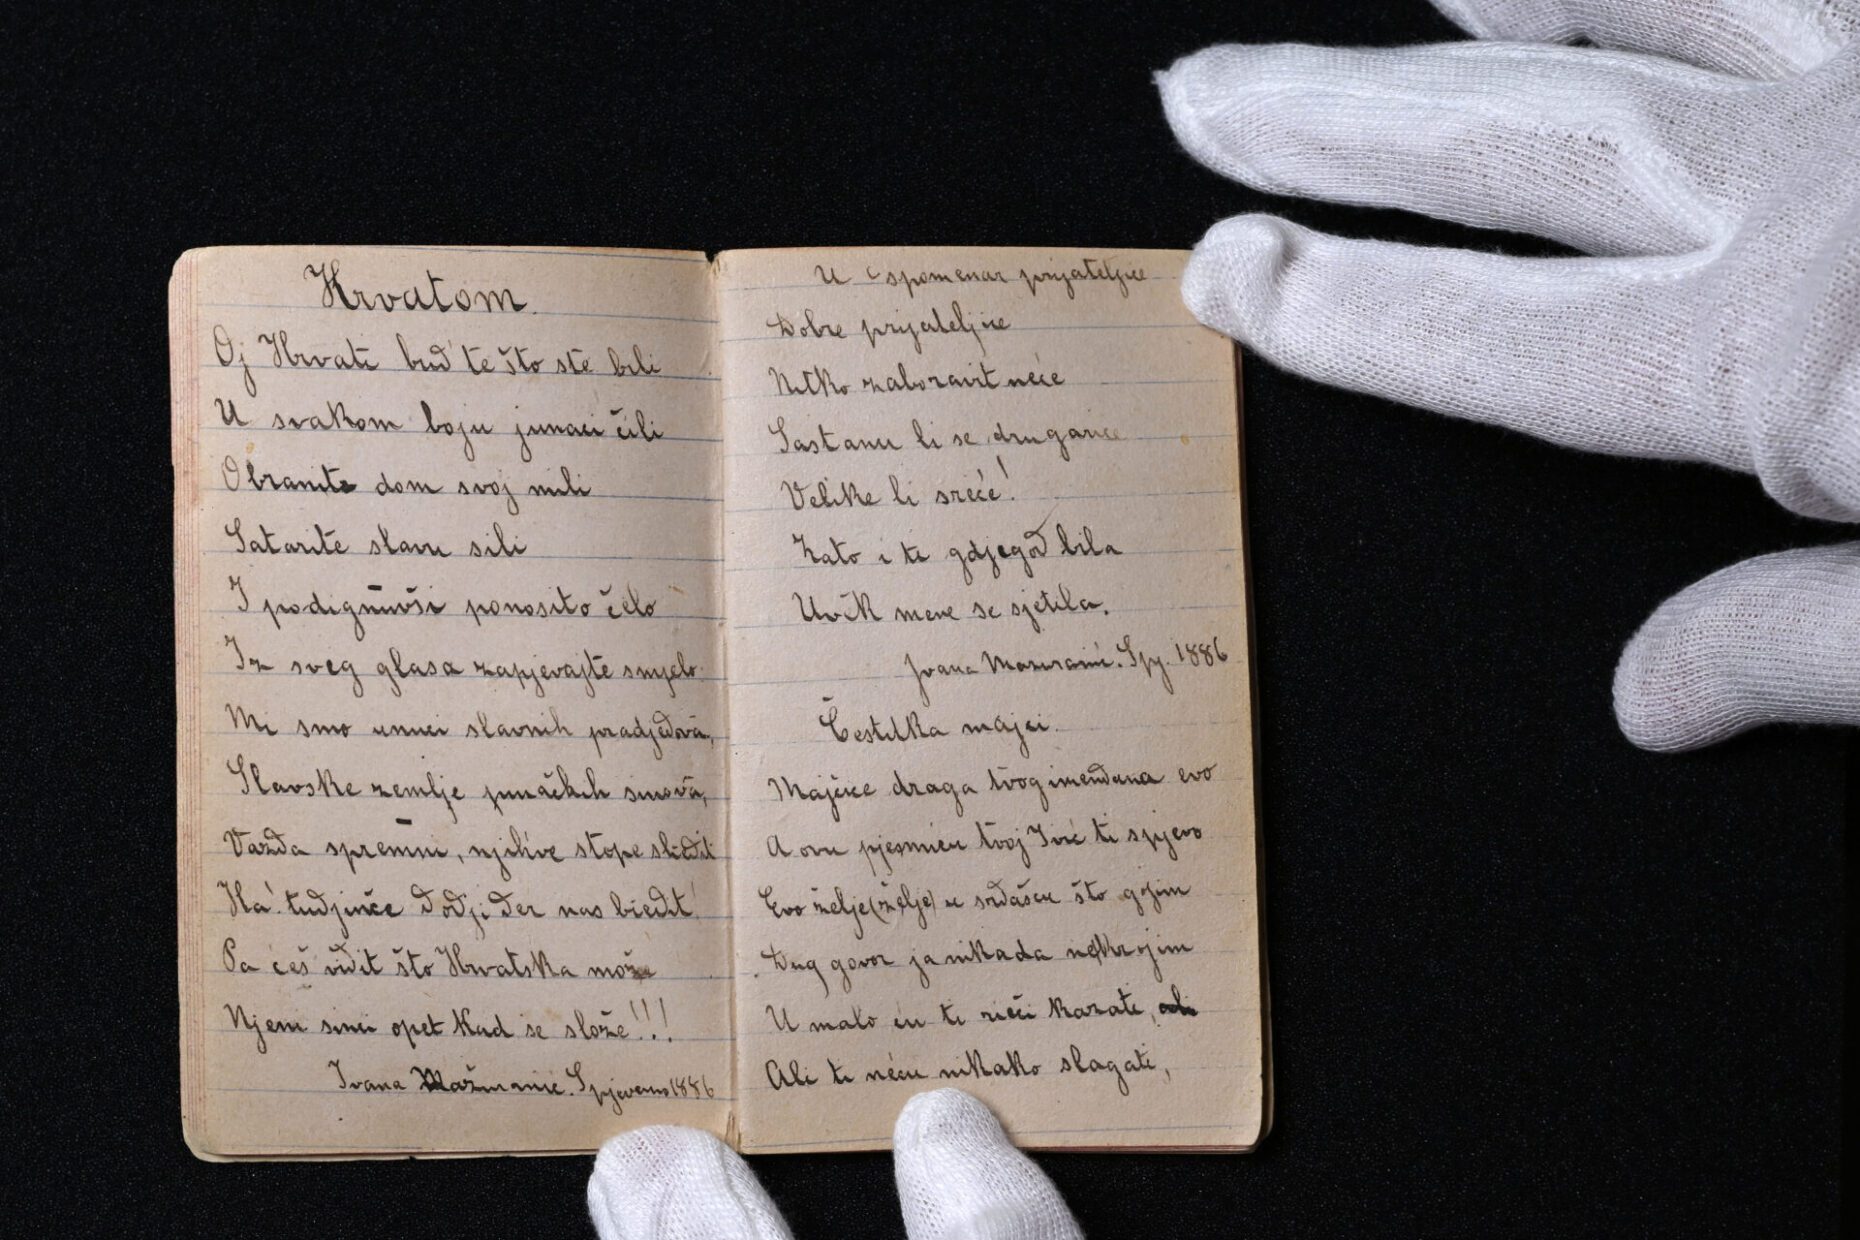 Hrvatom.
Oj Hrvati bud'te što ste bili
U svakom boju junaci čili
Obranite dom svoj mili
Satarite slavu sili
I podignuvši ponosito čelo
Iz sveg glasa zapjevajte smjelo:
Mi smo unuci slavnih pradjedova,
Slavske zemlje junačkih sinova,
Vazda spremni, njihve stope sliedit
Ha! tudjinče dodji der nas biedit!
Pa ćeš vidit što Hrvatska može
Njeni sinci opet kad se slože!!!
Ivana Mažuranić. Spjevano 1886
U spomenar prijateljice
Dobre prijateljice
Nitko zaboravit neće
Sastanu li se drugarice
Velike li sreće!
Zato i ti gdjegod bila
Uvik mene se sjetila.
Ivana Mažuranić. Spj. 1886
Čestitka majci.
Majčice draga tvog imendana evo
A ovu pjesmicu tvoj Ivić ti spjevo
Evo želje (želje) u srdašcu što gojim
Dug govor ja nikada ne krojim
U malo ću ti rieči kazati,
Ali ti neću nikako slagati,